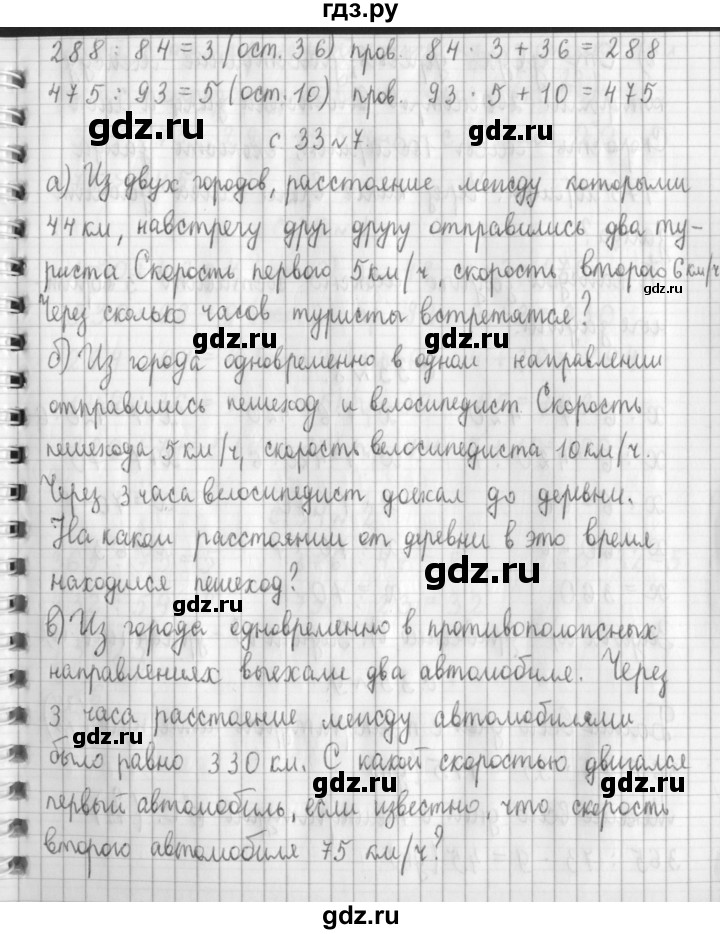 гдз.ру
288 : 84 = 3 (ост. 36) пров. 84 · 3 + 36 = 288
475 : 93 = 5 (ост. 10) пров. 93 · 5 + 10 = 475
gdz.ru
gdz.ru
с 33 №7
а) Из двух городов, расстояние между которыми
44 км, навстречу друг другу отправились два ту-
риста. Скорость первого 5 км/ч, скорость второго 6 км/ч
gdz.ru
Через сколько часов туристы встретятся?
gdz.ru
gdz.ru
б) Из города одновременно в одном направлении
отправились пешеход и велосипедист. Скорость
пешехода 5 км/ч, скорость велосипедиста 10 км/ч.
Через 3 часа велосипедист доехал до деревни.
На каком расстоянии от деревни в это время
находился пешеход?
gdz.ru
gdz.ru
в) Из города одновременно в противоположных
направлениях выехали два автомобиля. Через
3 часа расстояние между автомобилями
gdz.ru
было равно 330 км. С какой скоростью двигался
gdz.ru
gdz.ru
первый автомобиль, если известно, что скорость
второго автомобиля 75 км/ч?
gdz.ru